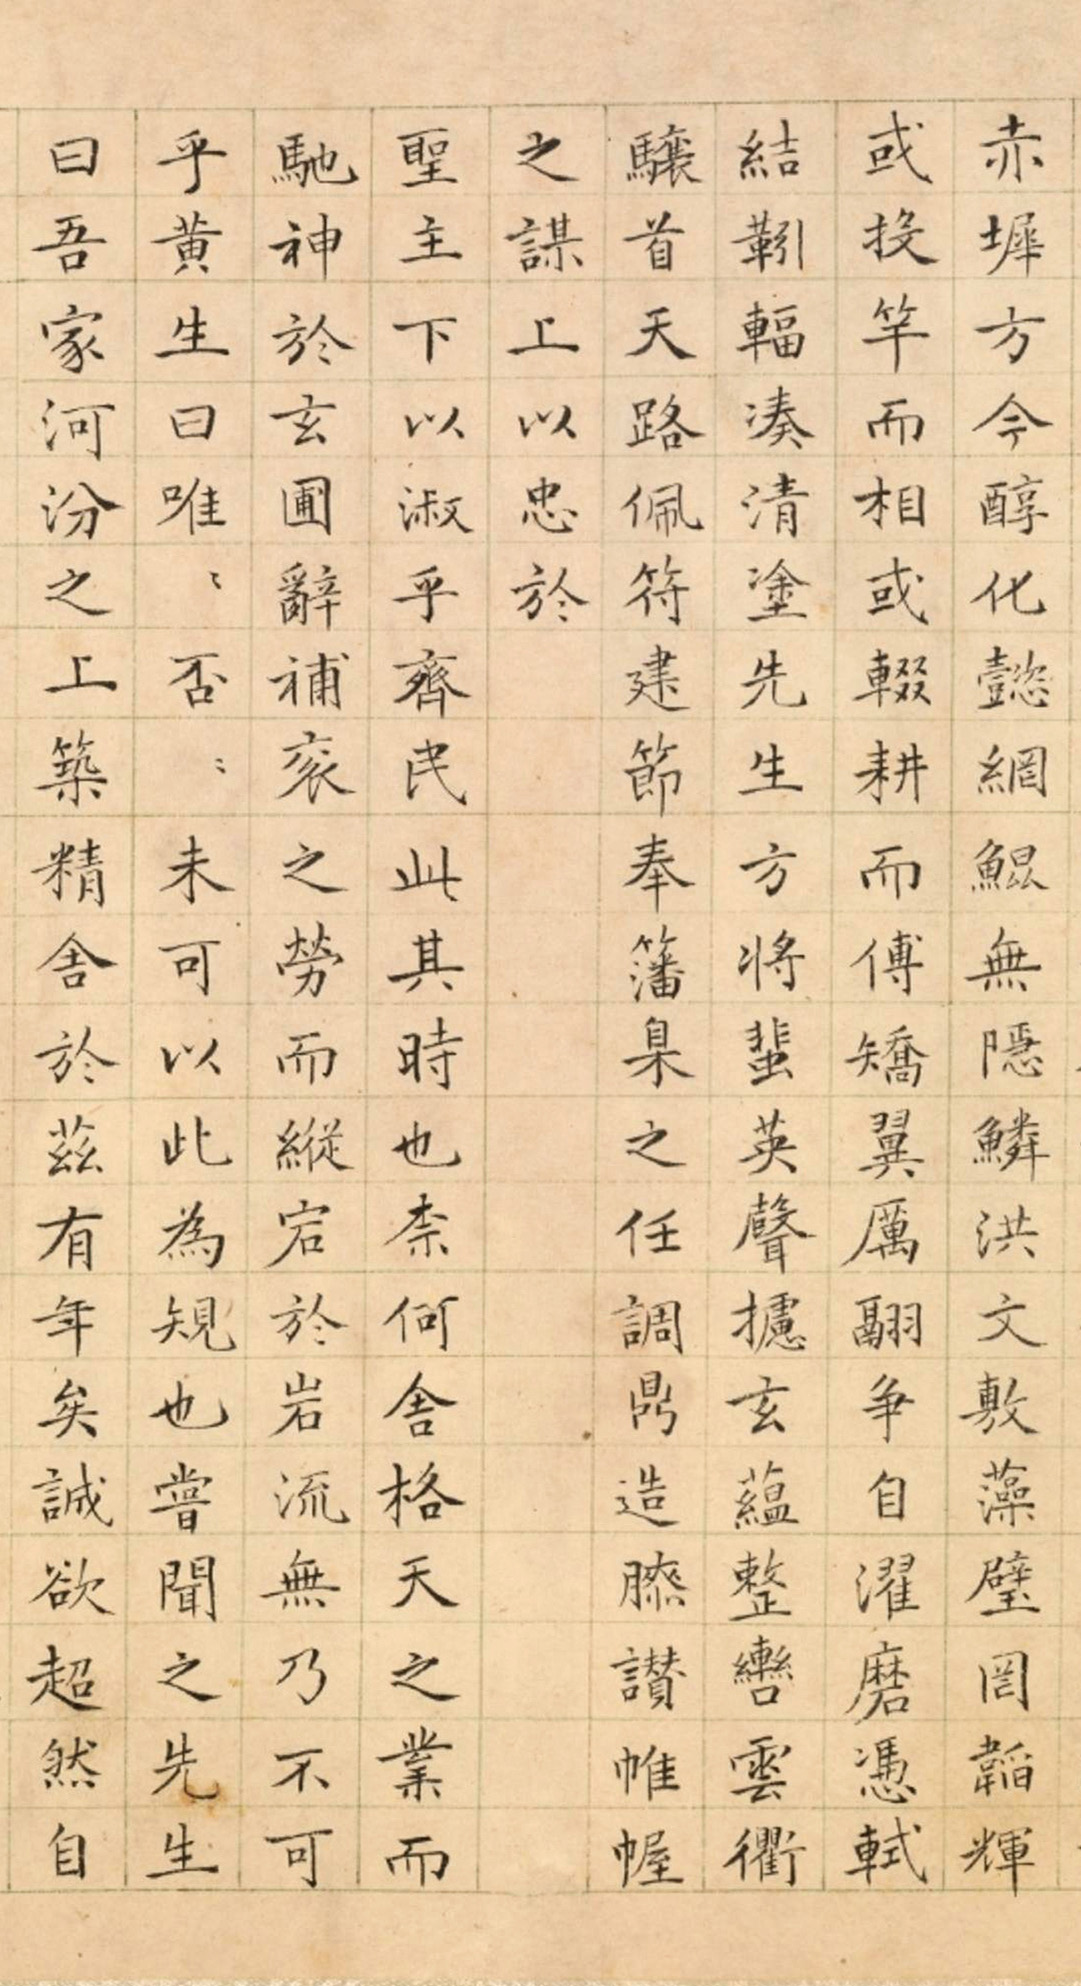 赤墀方今醇化懿網鯤無隱鱗洪文敷藻璧罔韜輝
或投竿而相或輟耕而傅矯翼厲翮爭自濯磨憑軾
結靷輻湊清塗先生方將蜚英聲攄玄蘊整轡雲衢
驤首天路佩符建節奉籓臬之任調鼎造膝讃帷幄
之謀上以忠於
聖主下以淑乎齊民此其時也柰何舍格天之業而
馳神於玄圃辭補衮之勞而縱宕於岩流無乃不可
乎黄生曰唯〻否〻未可以此為規也嘗聞之先生
曰吾家河汾之上築精舍於茲有年矣誠欲超然自